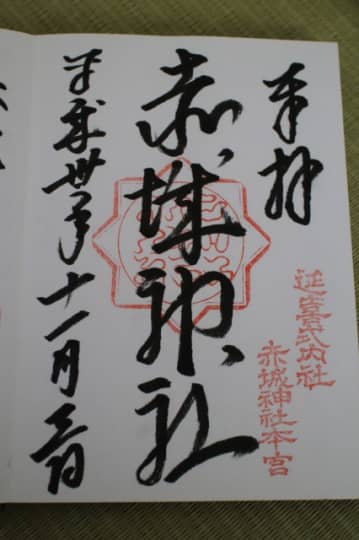 奉拝
延喜式内社
赤城神社本宮
赤城神社
平成卅年十一月三日